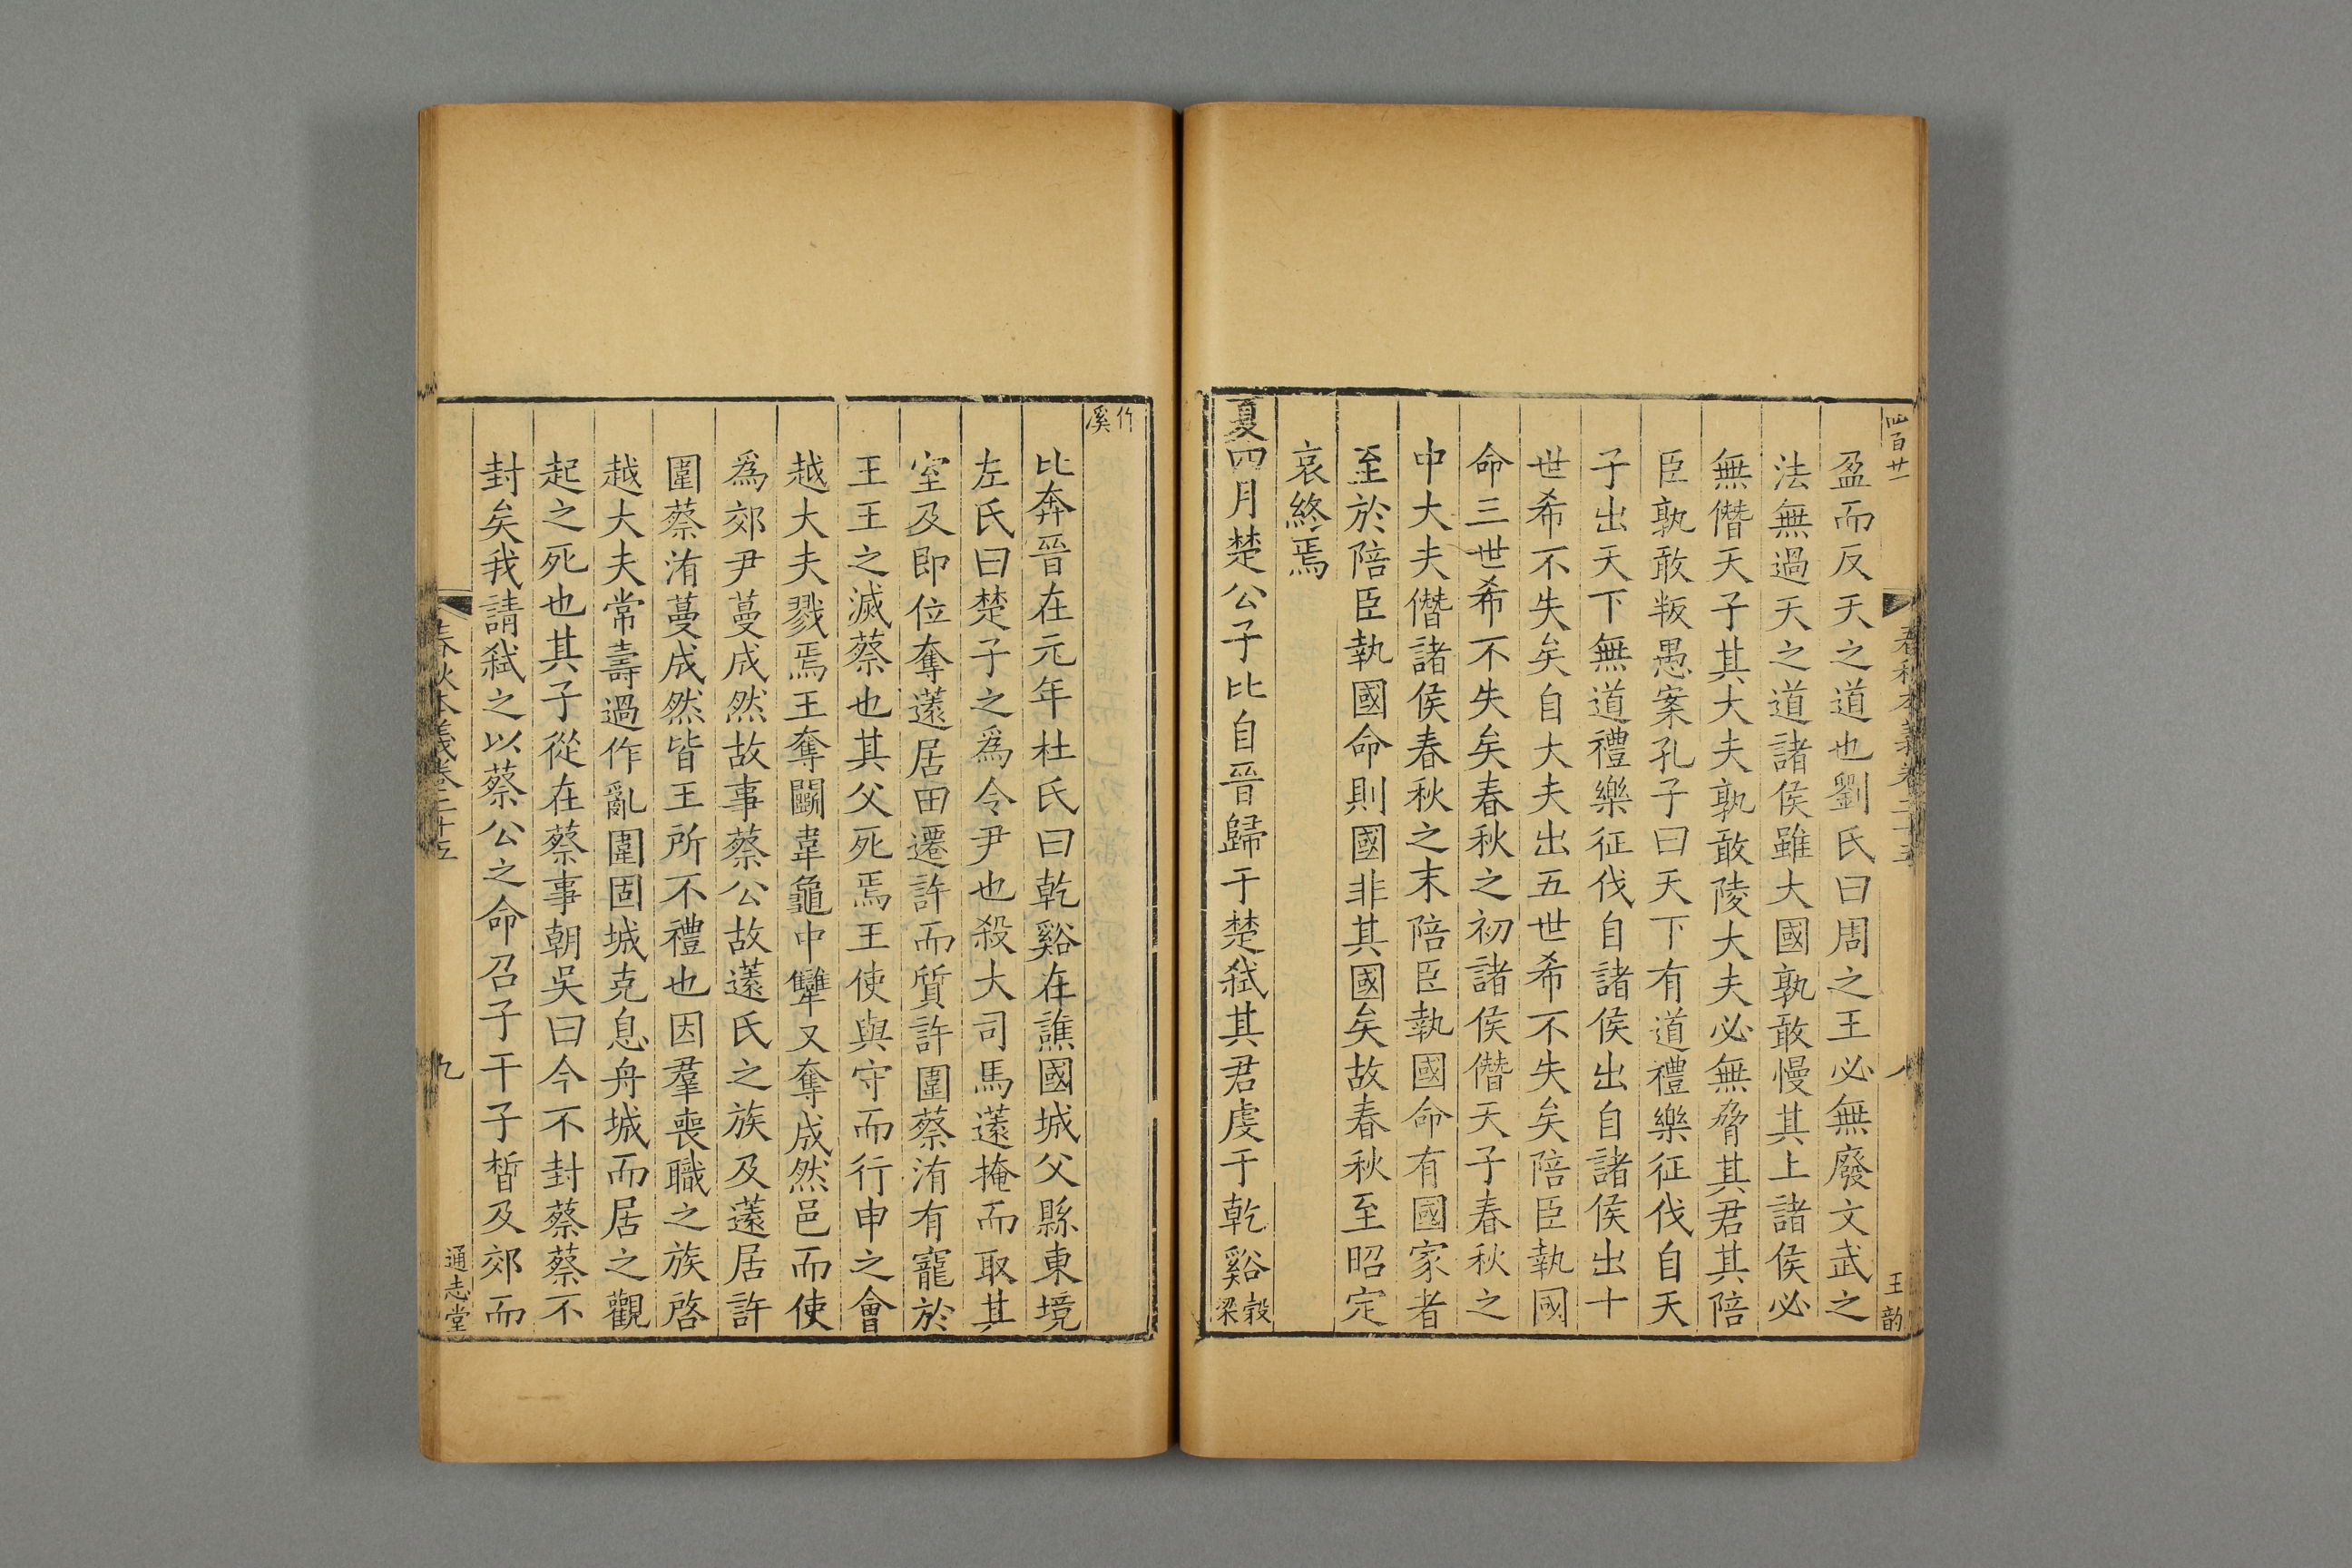 四百廿一
春秋本義卷二十五
八
王韵
盈而反天之道也劉氏曰周之王必無廢文武之
法無過天之道諸侯雖大國孰敢慢其上諸侯必
無僭天子其大夫孰敢陵大夫必無脅其君其陪
臣孰敢叛愚案孔子曰天下有道禮樂征伐自天
子出天下無道禮樂征伐自諸侯出自諸侯出十
世希不失矣自大夫出五世希不失矣陪臣執國
命三世希不失矣春秋之初諸侯僭天子春秋之
中大夫僭諸侯春秋之末陪臣執國命有國家者
至於陪臣執國命則國非其國矣故春秋至昭定
哀終焉
夏四月楚公子比自晉歸于楚弒其君虔于乾谿穀梁
作溪
比奔晉在元年杜氏曰乾谿在譙國城父縣東境
左氏曰楚子之爲令尹也殺大司馬薳掩而取其
室及即位奪薳居田遷許而質許圍蔡洧有寵於
王王之滅蔡也其父死焉王使與守而行申之會
越大夫戮焉王奪鬬韋龜中犫又奪成然邑而使
爲郊尹蔓成然故事蔡公故薳氏之族及薳居許
圍蔡洧蔓成然皆王所不禮也因羣喪職之族啓
越大夫常壽過作亂圍固城克息舟城而居之觀
起之死也其子從在蔡事朝吳曰今不封蔡蔡不
封矣我請弒之以蔡公之命召子干子晳及郊而
春秋本義卷二十五
九
通志堂